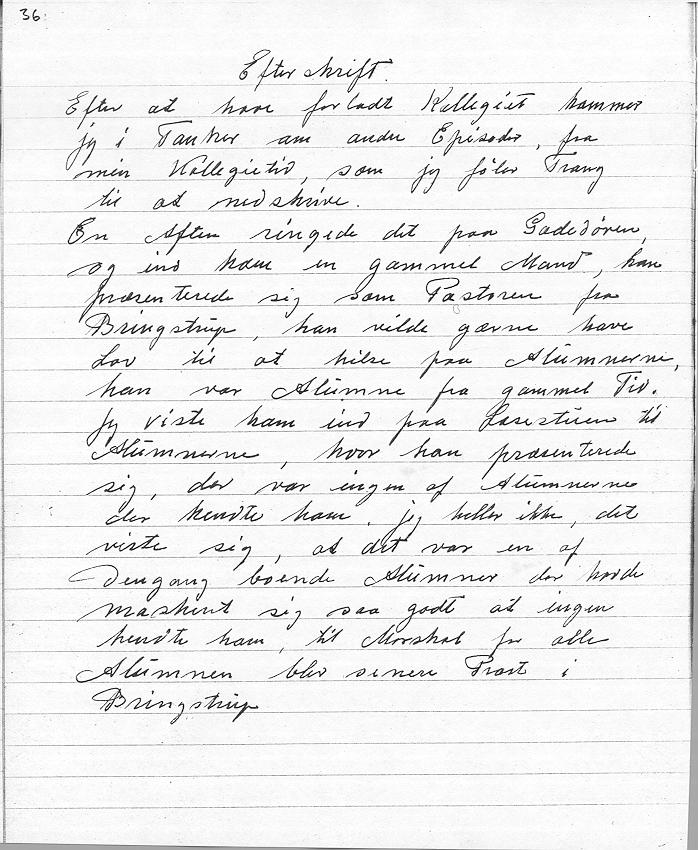 36.
Efterskrift.
Efter at have forladt Kollegiet kommer
jeg i Tanker om andre Episoder, fra
min Kollegietid, som jeg føler Trang
til at nedskrive.
En Aften ringede det paa Gadedøren,
og ind kom en gammel Mand, han
præsenterede sig som Pastoren fra
Bringstrup, han vilde gærne have
Lov til at hilse paa Alumnerne,
han var Alumne fra gammel Tid.
Jeg viste ham ind paa Læsestuen til
Alumnerne, hvor han præsenterede
sig, der var ingen af Alumnerne
der kendte ham, jeg heller ikke, det
viste sig, at det var en af
Dengang boende Alumner der havde
maskeret sig saa godt at ingen
kendte ham, til Morskab for alle
Alumnen blev senere Præst i
Bringstrup